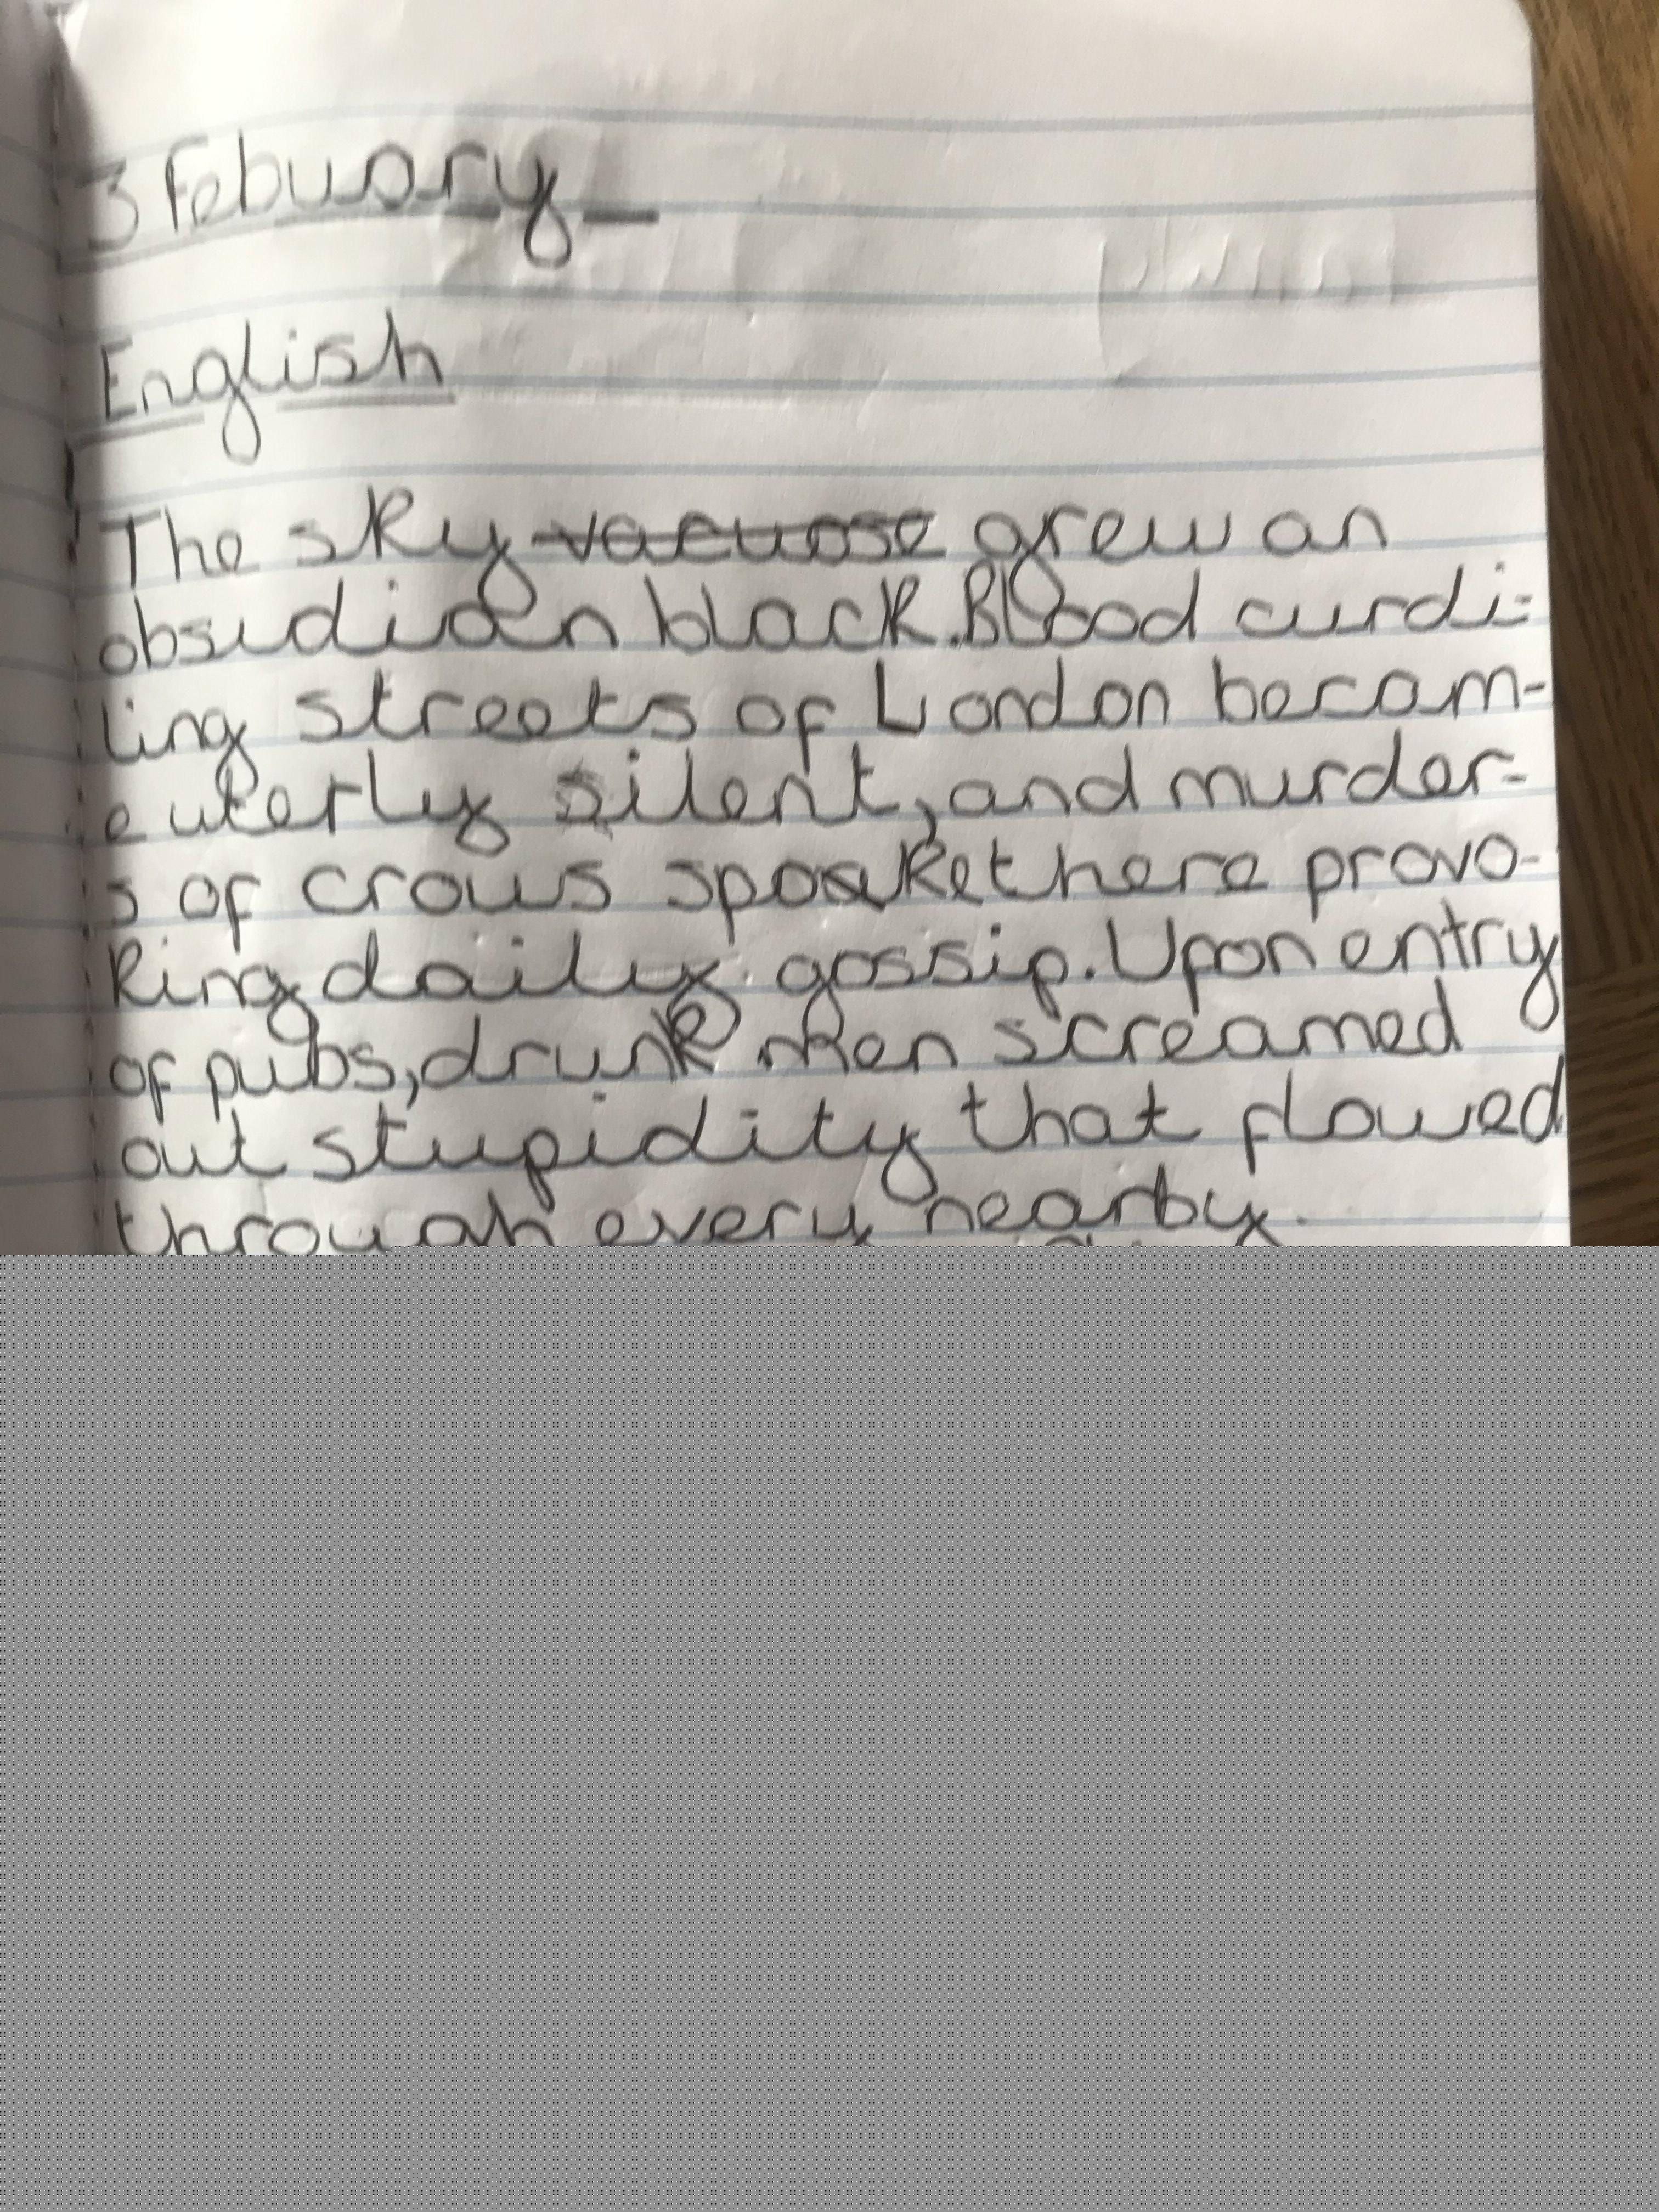 3 Febuary
English
The sky vacuose grew an
obsidian black. Blood curdi-
ling streets of London becom-
e uterly silent, and murder-
s of crows spoake there provo-
king daily gossip. Upon entry
of pubs, drunk men screamed
out stupidity that flowed
through every nearby.